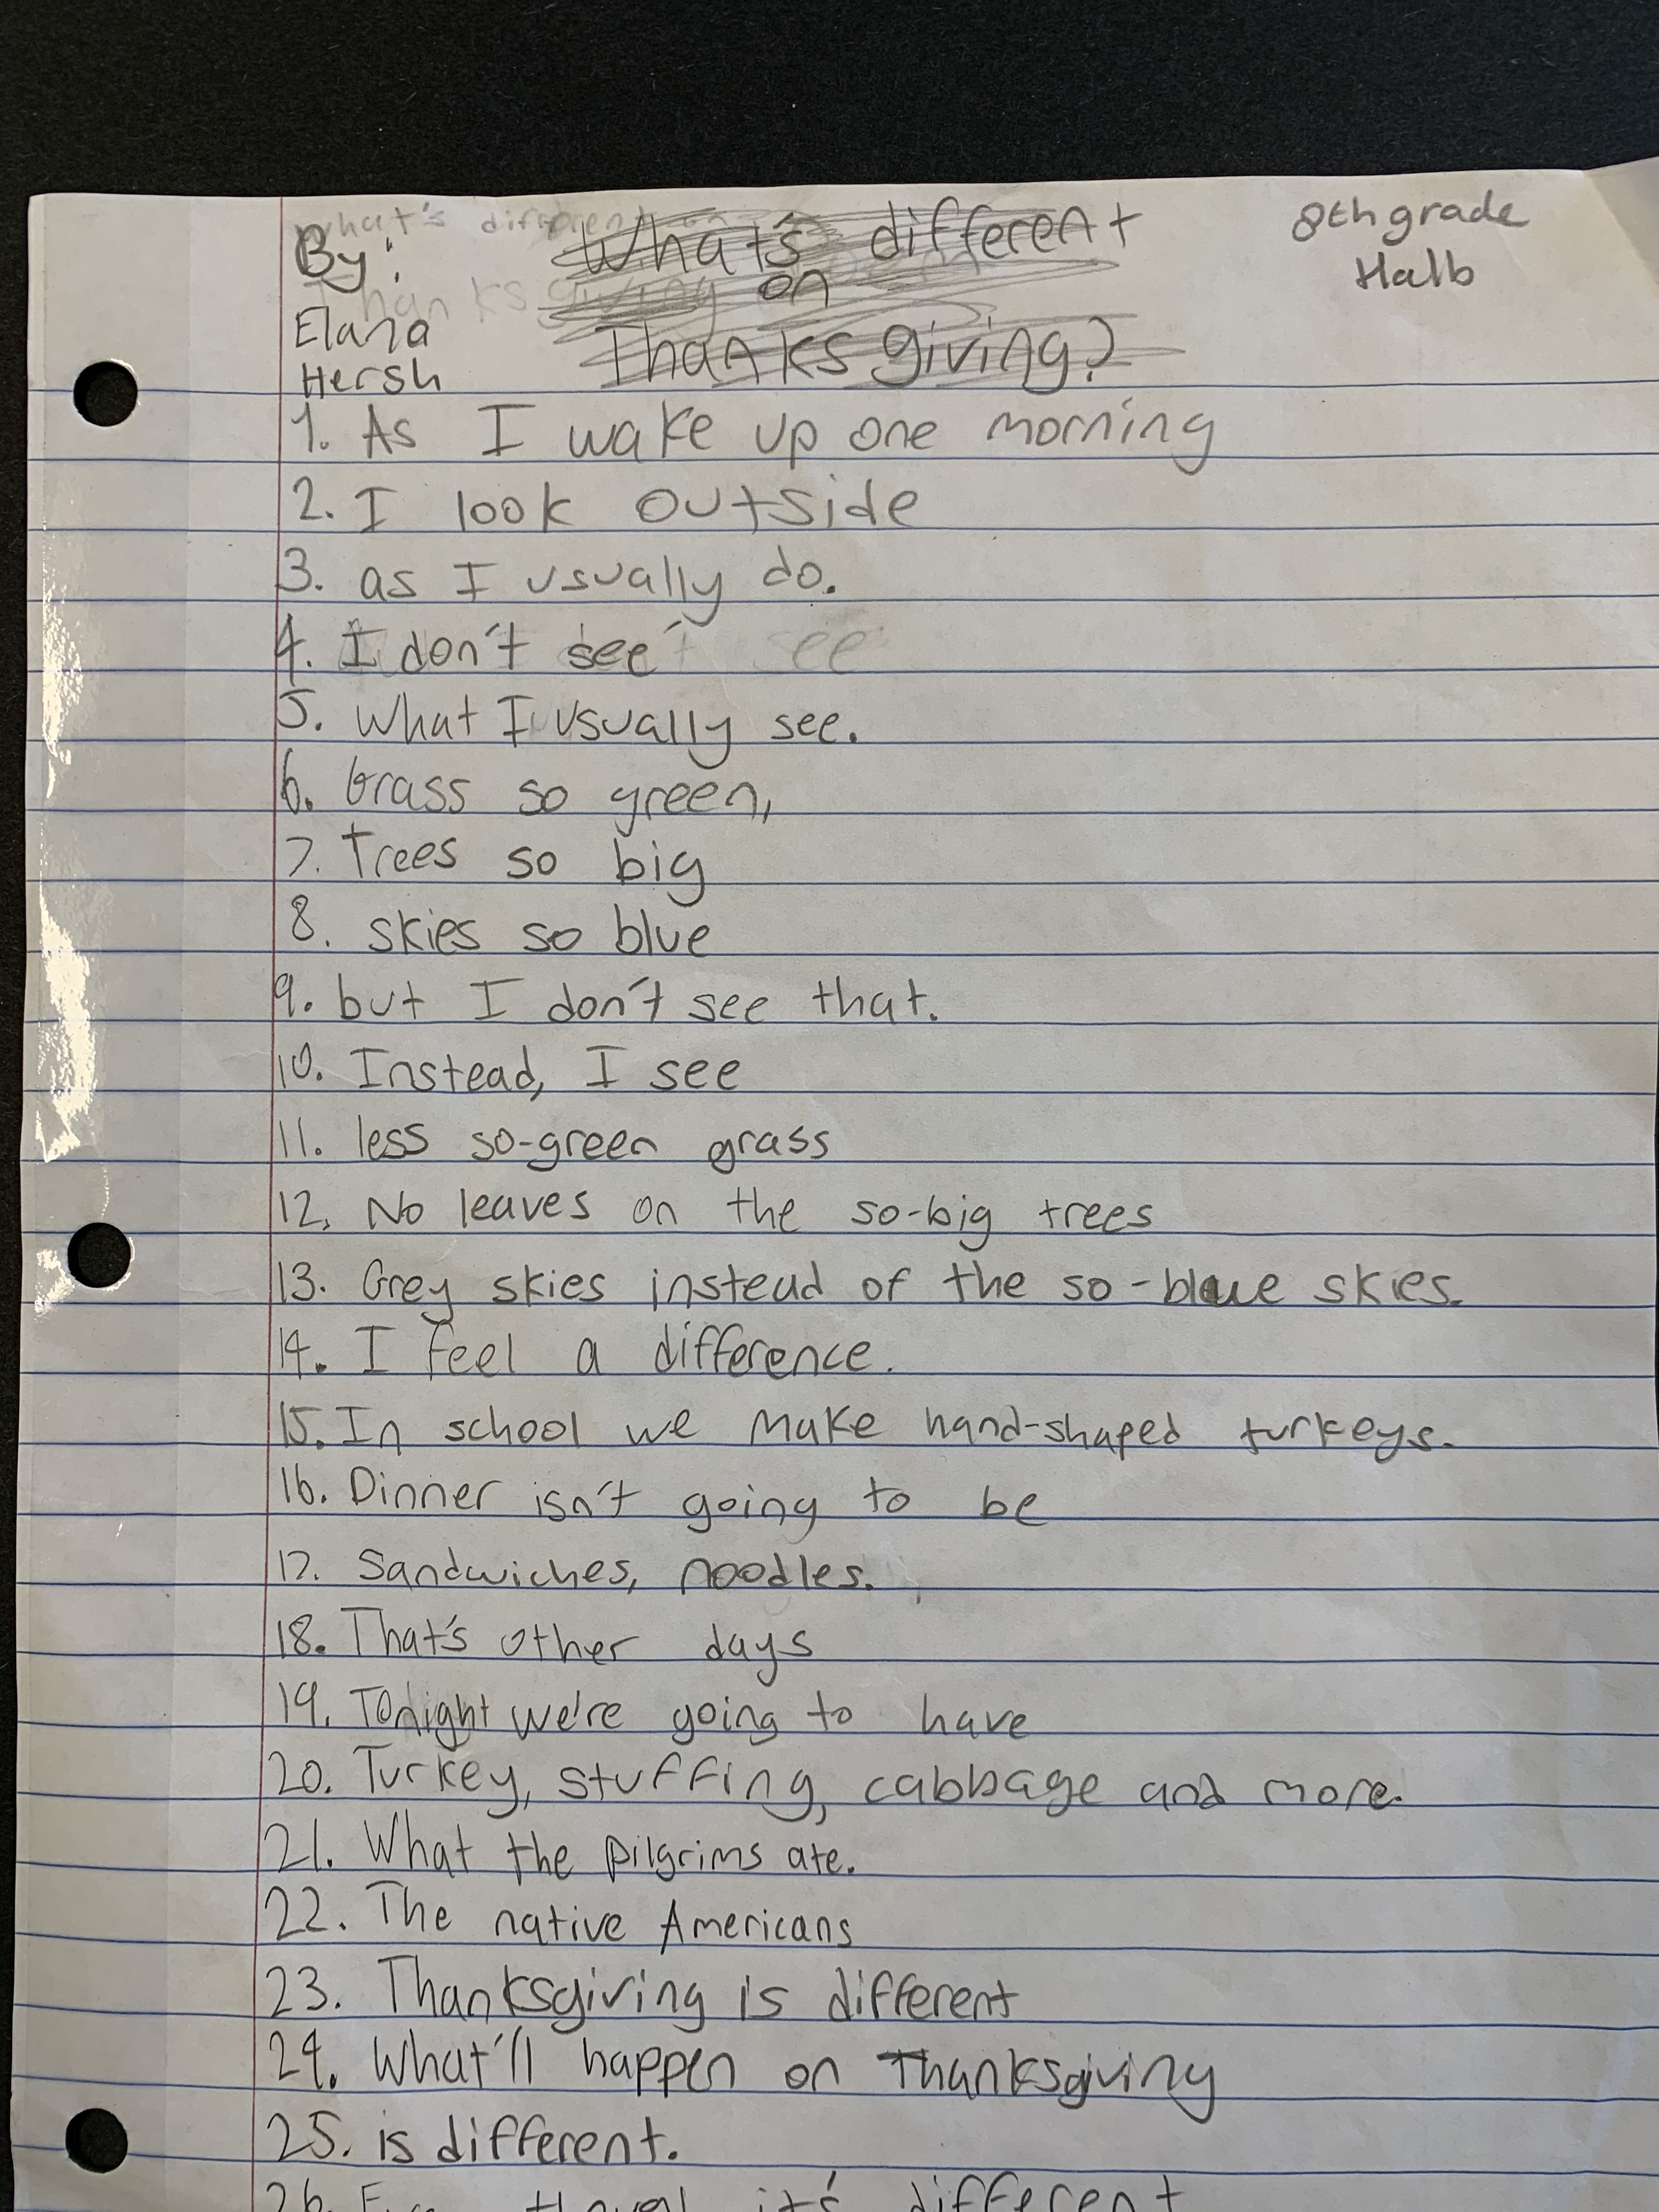 By:
Elana
Hersh
What's different
on
Thanksgiving?
8th grade
Halb
1. As I wake up one morning
2. I look outside
3. as I usually do.
4. I don't see
5. What I usually see.
6. Grass so green,
7. Trees so big
8. skies so blue
9. but I don't see that.
10. Instead, I see
11. less so-green grass
12. No leaves on the so-big trees
13. Grey skies instead of the so-blue skies.
14. I feel a difference.
15. In school we make hand-shaped turkeys.
16. Dinner isn't going to be
17. Sandwiches, noodles.
18. That's other days
19. Tonight we're going to have
20. Turkey, stuffing, cabbage and more.
21. What the pilgrims ate.
22. The native Americans
23. Thanksgiving is different
24. What'll happen on Thanksgiving
25. is different.
26. it's different